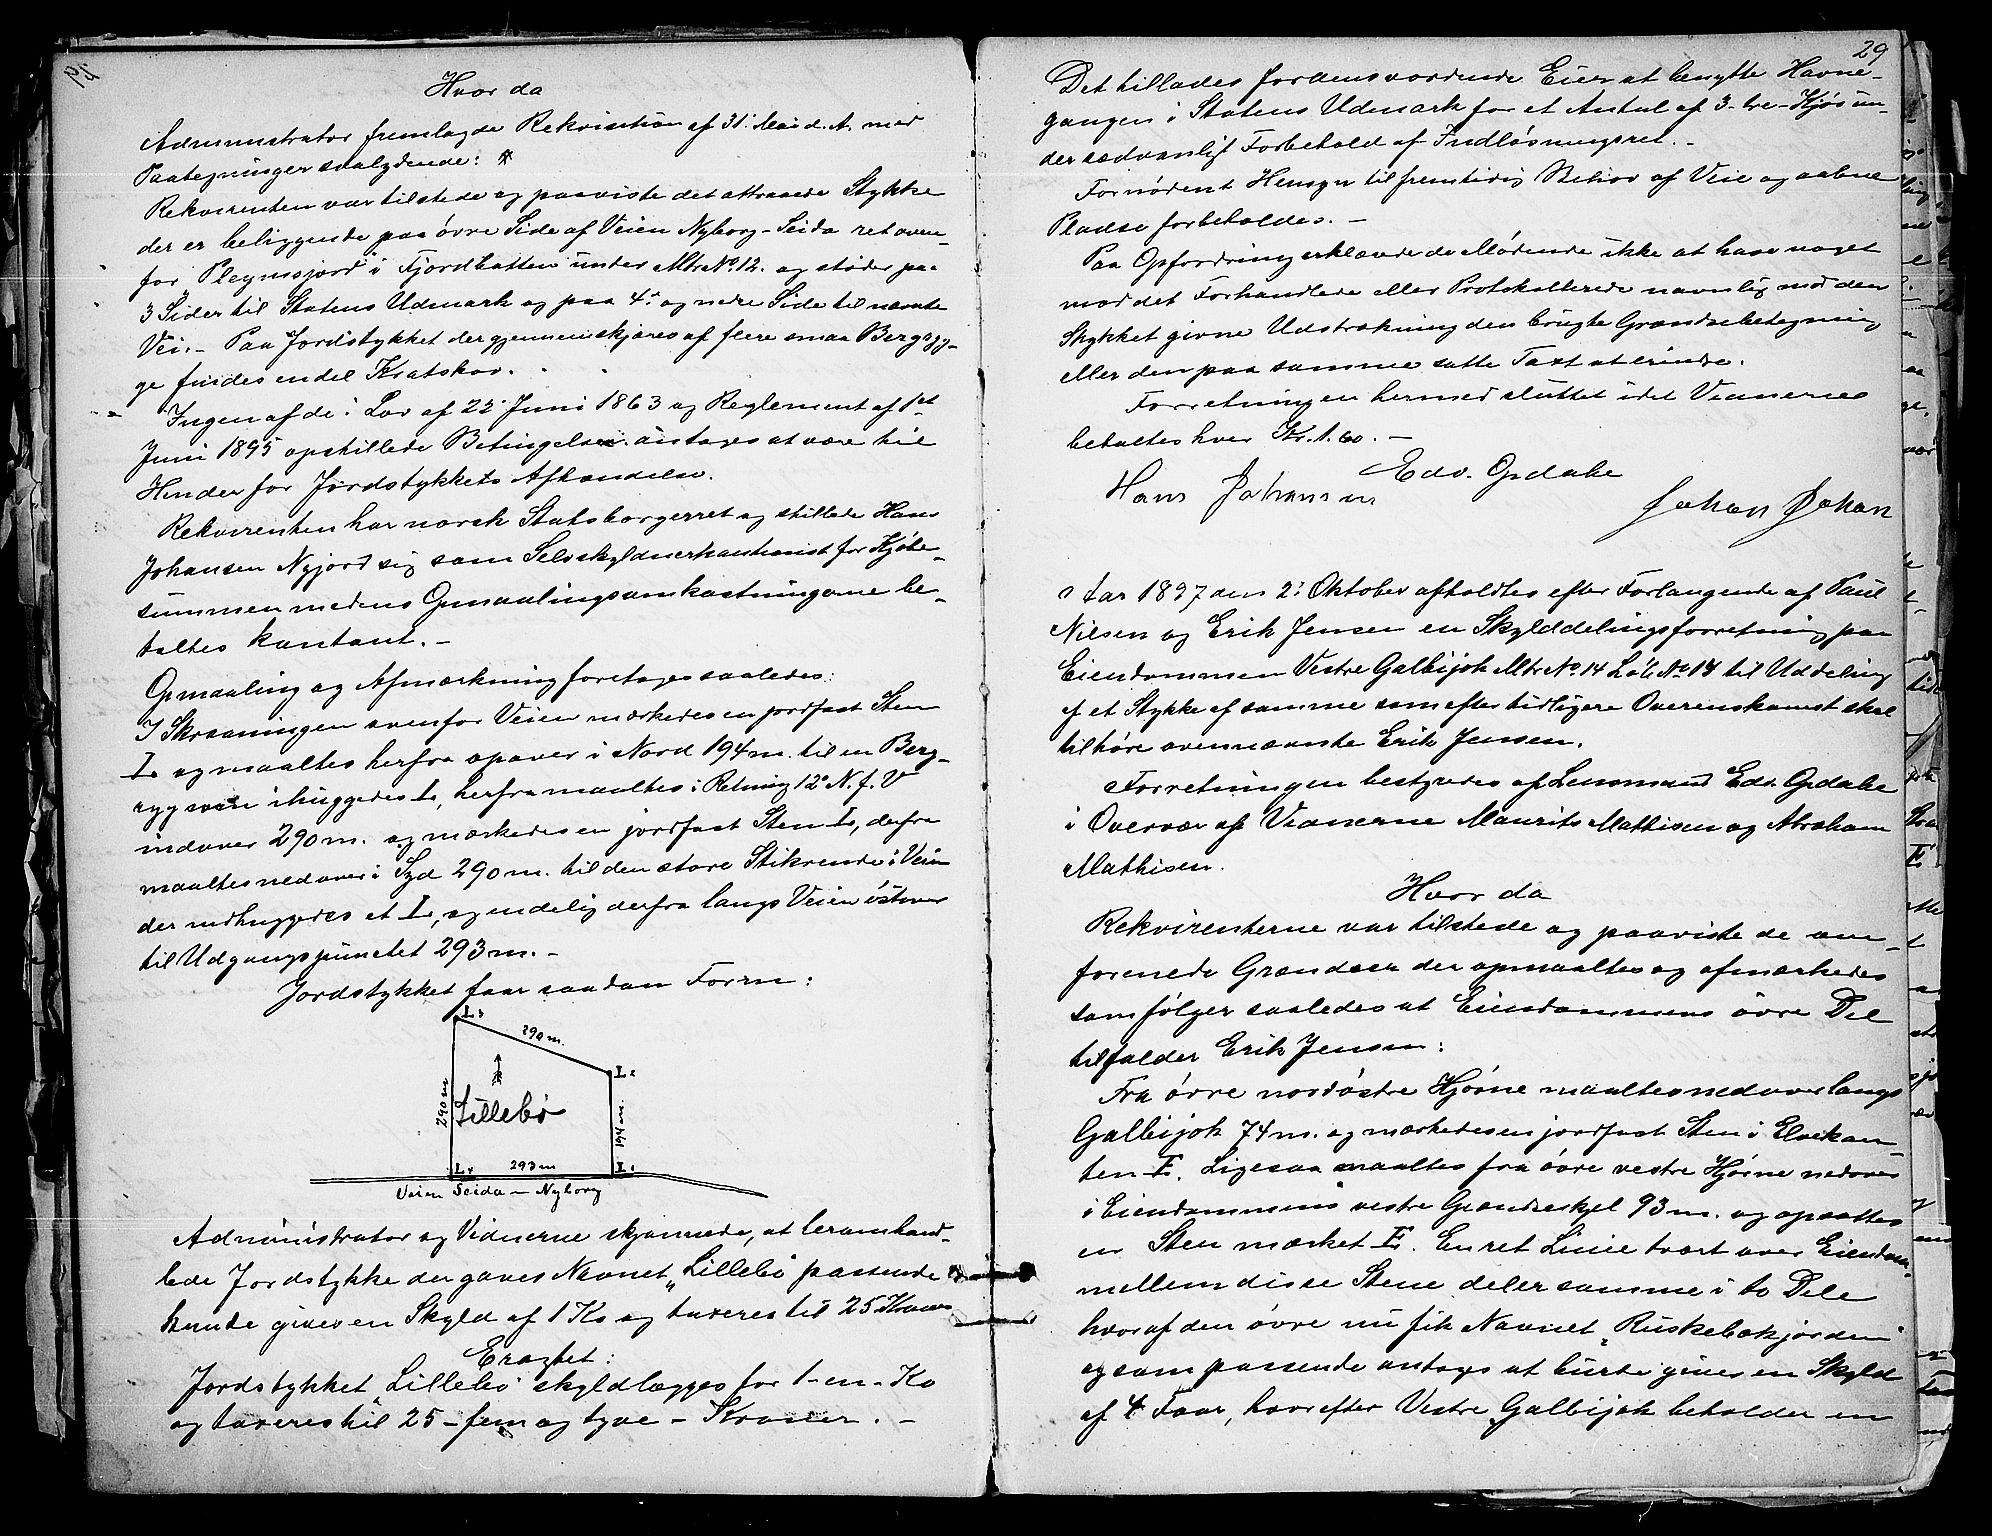 Hvor da
Administrator fremlagde Rekvisition af 31' Mai d. A. med
Paategninger saalydende: *
Rekvirenten var tilstede og paaviste det attraaede Stykke
der er beliggende paa övre Side af Veien Nyborg-Seida ret oven-
for i Fjordbotten under Mtr No. 12. og støder paa
3 Sider til Statens Udmark og paa 4' og nedre Side til nævnte
Vei. - Paa Jordstykket der gjennemskjæres af flere smaa Bergryg-
ge findes endel Kratskov.
Ingen af de i Lov af 22' Juni 1863 og Reglement af 1ste
Juni 1895 opstillede Betingelser antages at være til
Hinder for Jordstykkets Afhændelse.
Rekvirenten har norsk Statsborgerret og stillede Hans
Johansen Nyjord sig som Selvskyldnerkautionist for Kjöbe-
summen medens Opmaalingsomkostningerne be-
taltes kontant. -
Opmaaling og Afmærkning foretages saaledes:
I Skraaningen ovenfor Veien mærkedes en jordfast Sten
I1 og maaltes herfra opover i Nord 194 m. til en Berg-
ryg hvori ihuggedes I2, herfra maaltes i Retning 12° N. f. V
indover 290 m. og mærkedes en jordfast Sten I3, derfra
maaltes nedover i Syd 290 m. til den store Stikrende i Veien
der indhuggedes et I4, og endelig derfra langs Veien östover
til Udgangspunctet 293 m. -
Jordstykket faar saadan Form:
I3
290 m.
I2
290 m
Lillebö
194 m.
I4
293 m
I1
Veien Seida - Nyborg
Administrator og Vidnerne skjönnede, at heromhand-
lede Jordstykke der gaves Navnet „Lillebö" passende
kunde gives en Skyld af 1 Ko og taxeres til 25 Kroner
Eragtet:
Jordstykket „Lillebö" skyldlægges for 1 - en - Ko
og taxeres til 25 - fem og tyve - Kroner. -
29
Det tillades fordensvordende Eier at benytte Havne-
gangen i Statens Udmark for et Antal af 3 - tre - Kjör un-
der sædvanligt Forbehold af Indlösningsret. -
Fornödent Hensyn til fremtidig Behov af Veie og aabne
Pladse forbeholdes. -
Paa Opfordring erklærede de Mödende ikke at have noget
mod det Forhandlede eller Protokollerede navnlig mod den
Stykket givne Udstrækning den brugte Grændsebetegning
eller den paa samme satte Taxt at erindre.
Forretningen hermed sluttet idet Vidnernes
betaltes hver Kr. 1.60. -
Edv. Opdahl
Hans Johansen
Johan Johan
Aar 1897 den 2' Oktober afholdtes efter Forlangende af Paul
Nilsen og Erik Jensen en Skylddelingsforretning paa
Eiendommen Vestre Galbijok Mtr No. 14 Löb No 14 til Uddeling
af et Stykke af samme som efter tidligere Overenskomst skal
tilhöre ovennævnte Erik Jensen.
Forretningen bestyredes af Lensmand Edv. Opdahl
i Overvær af Vidnerne Maurits Mathisen og Abraham
Mathisen.
Hvor da
Rekvirenterne var tilstede og paaviste de om-
forenede Grændser der opmaaltes og afmærkedes
som fölger saaledes at Eiendommens övre Del
tilfalder Erik Jensen:
Fra övre nordöstre Hjörne maaltes nedover langs
Galbijok 74 m. og mærkedes en jordfast Sten i Elvekan-
ten E. Ligesaa maaltes fra övre vestre Hjörne nedover
i Eiendommens vestre Grændseskjel 93 m. og opsattes
en Sten mærket E. En ret Linie tvært over Eiendom.
mellem disse Stene deler samme i to Dele
hvoraf den övre nu fik Navnet „Ruskebækjorden"
og som passende antages at burde gives en Skyld
af 4 Faar, hvorefter Vestre Galbijok beholder en